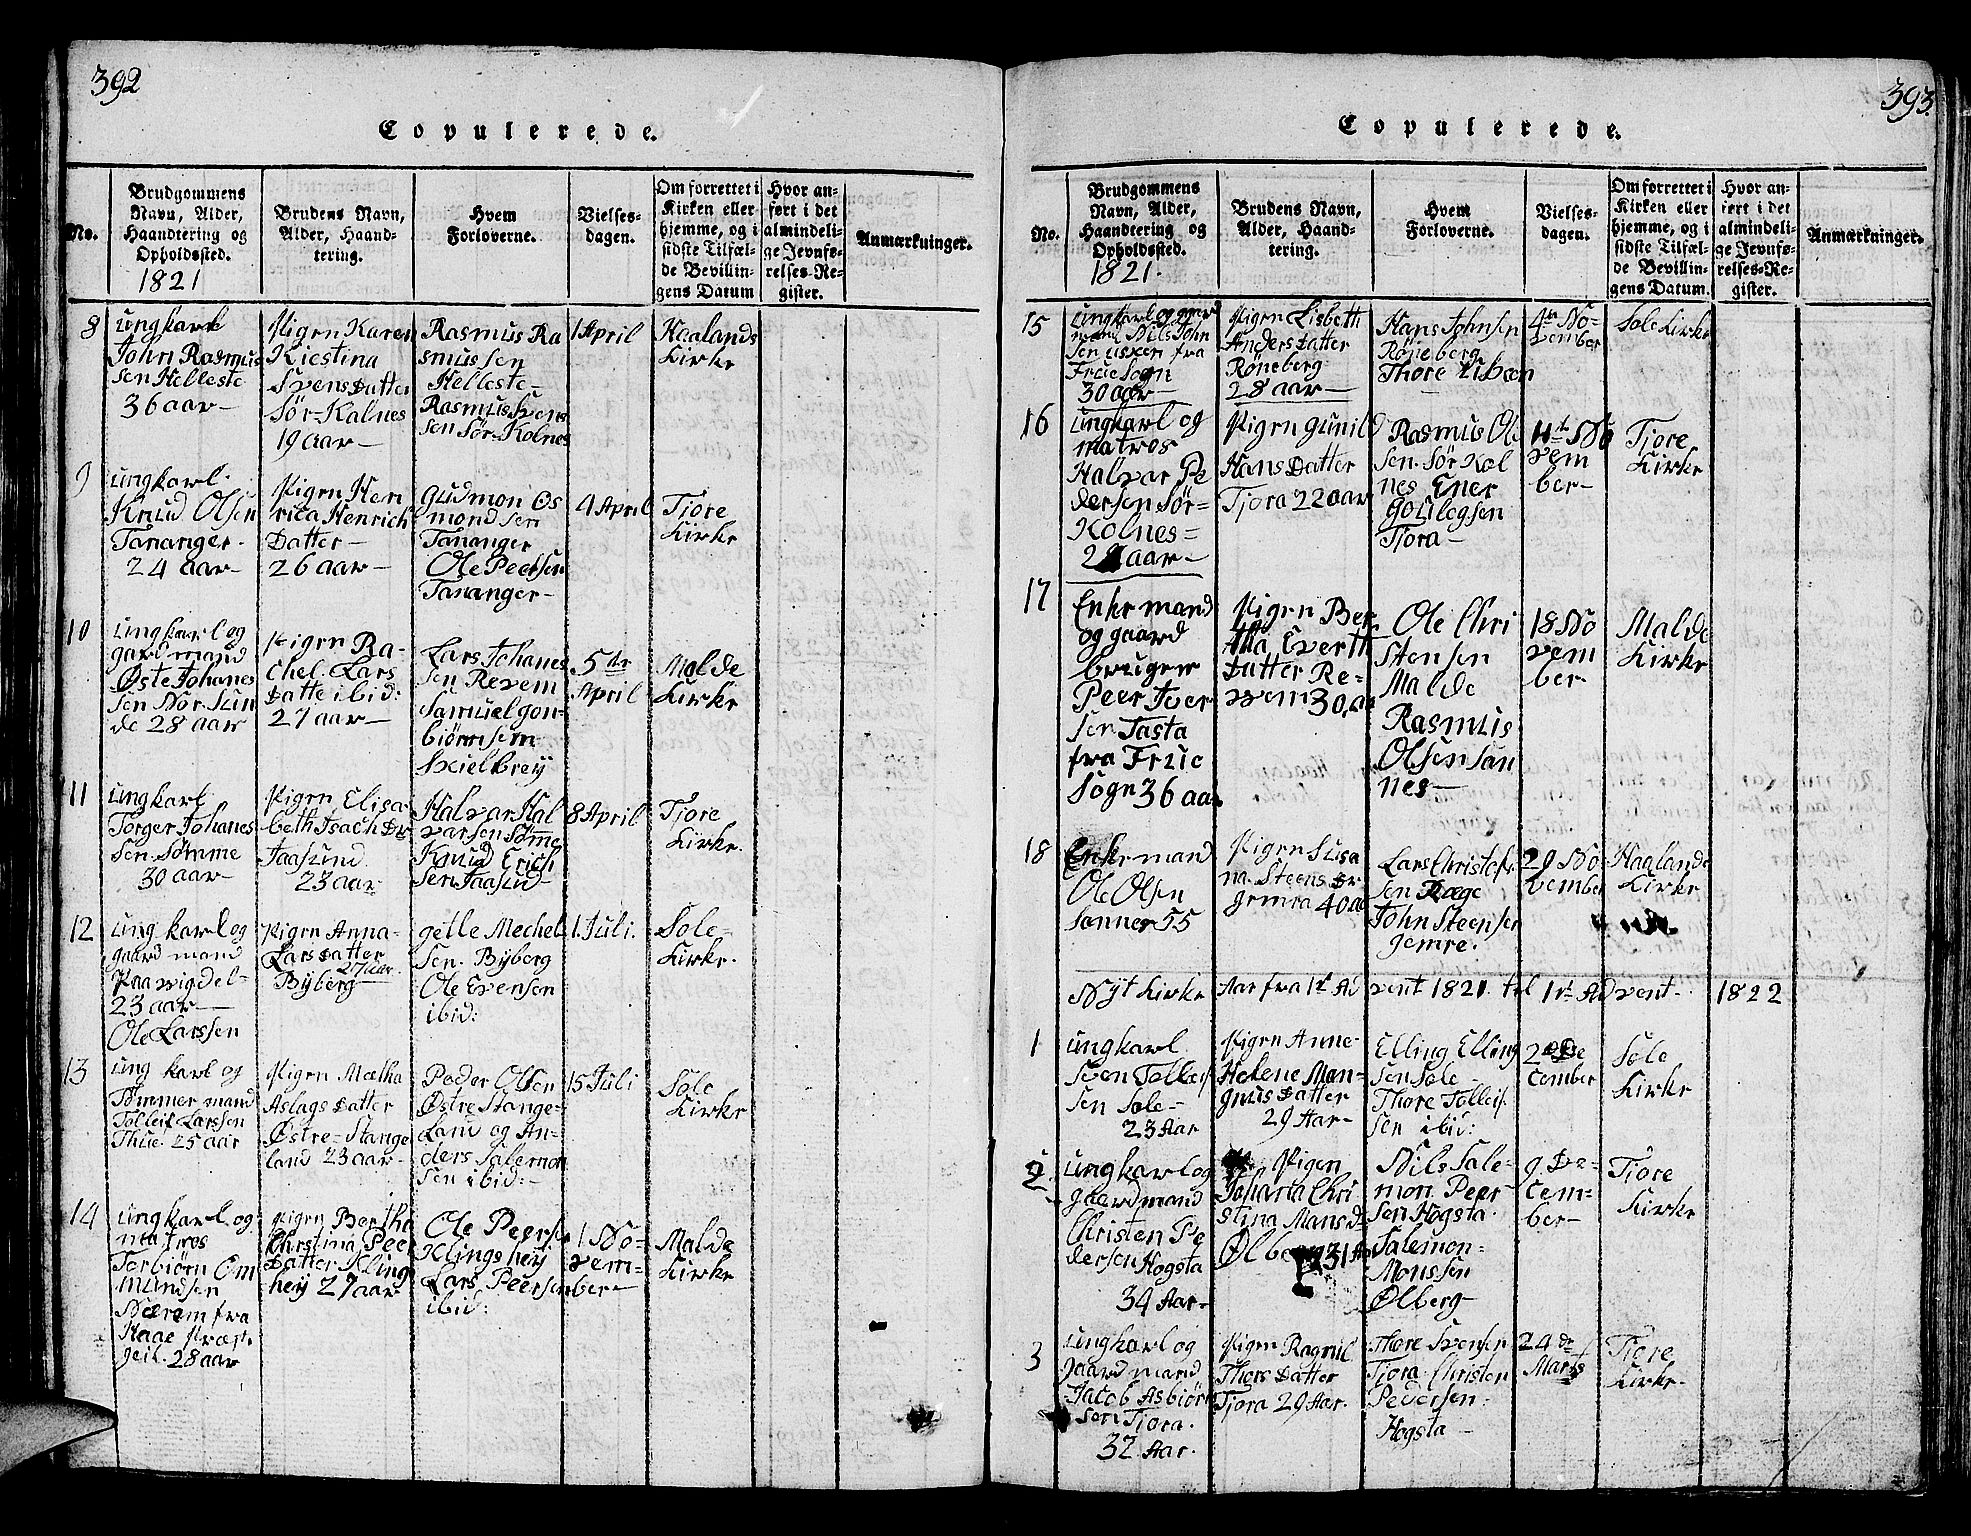 392
Copulerede.
No.
Brudgommens
Navn, Alder,
Haandtering og
Opholdssted.
1821
Brudens Navn,
Alder, Haand-
tering.
Hvem
Forloverne.
Vielses-
dagen.
Om forrettet i
Kirken eller
hjemme, og i
sidste Tilfæl-
de Bevillin-
gens Datum
Hvor an-
ført i det
almindeli-
ge Jevnfø-
relses-Re-
gister.
Anmærkninger.
8
ungkarl
John Rasmus
sen Helleste
36 aar
Pigen Karen
Kiestina
Svens Datter
Sør-Kalnes
19 aar
Rasmus Ra
smussen
Helleste
Rasmus Svens
sen Sør-Kolnes
1 April
Haalands
Kirke
9
ungkarl
Knud Olsen
Tananger
24 aar
Pigen Hen
rica Henrich
Datter
26 aar
Gudmon Os
mondsen
Tananger
Ole Peersen
Tananger
4 April
Tjore
Kirke
10
ungkarl og
gardmand
Øste Johanes
sen Nór-Sun
de 28 aar
Pigen Ra-
chel Lars
Datte ibid:
27 aar
Lars Johanes
sen Revem
Samuel Gon-
biørnsen
Skielbrey
5te
April
Malde
Kirke
11
ungkarl
Torger Johanes
sen Sømme
30 aar
Pigen Elisa
beth Isach Dr
Taasund
23 aar
Halvar Hal
varsen Sømme
Knud Erich
sen Taasud
8 April
Tjore
Kirke.
12
ung karl og
gaard mand
Paa vigdel-
23 aar
Ole Larssen
Pigen Anna-
Lars Datter
27 aar.
Byberg
Gelle Mechel
sen. Byberg
Ole Evensen
ibid:
1. Juli.
Sole-
Kirke.
13
ung karl og
Tømmer mand
Tolleif Larssen
Thue. 25 aar
Pigen Mæltha
Aslags Datter
Østre-Stange
land 23 aar
Peder Olsen
Østre Stange-
land og An-
ders Salemon
sen ibid:-
15 Juli
Sole
Kirke
14
ungkarl og
matros
Torbiørn Om
mundsen
Nærem fra
Haae Præst
geil. 28 aar
Pigen Bertha
Chrstina Peer
Datter Kling
hey 27 aar
Ole Peersen
Klings hey
Lars Peersen
ibid:
1 No-
vem-
ber
Malde
Kirke
393
Copulerede.
No.
Brudgommens
Navn, Alder,
Haandtering og
Opholdssted.
1821.
Brudens Navn,
Alder, Haand-
tering.
Hvem
Forloverne.
Vielses-
dagen.
Om forrettet i
Kirken eller
hjemme, og i
sidste Tilfæl-
de Bevillin-
gens Datum.
Hvor an-
ført i det
almindeli-
ge Jevnfø-
relses-Re-
gister.
Anmærkninger.
15
ungkarl og gaar
mand Nils John
sen fra
Frue Sogn
30 aar
Pigen Lisbeth
Anders Datter
Røneberg
28 aar
Hans Johnsen
Røneberg
Thore
4de No-
vember
Sole Kirke
16
ungkarl og
matros
Halvar Pe
dersen Sør-
Kolnes
aar
Pigen Gunild
Hans Datter
Tjora 22 aar
Rasmus Ols
sen. Sør Kol
nes Ener
Goutegsen
Tjora
11te No
vem
ber
Tjore
Kirke
17
Enkemand
og gaard
bruger
Peer Iver
sen Tasta
fra Frue
Sogn 36 aar
Pigen Ber
tha Evertt
Datter Re-
vem 30 aa
Ole Chri
stensen
Malde
Rasmus
Olsen Sau
nes
18 No
vem
ber
Malde
Kirke
18
Enkemand
Ole Olsen
Sønner 55
Pigen Susa
na. Steens Dr
gemra 40 aa
Lars Christof
sen Ræge
John Steensen
gemre.
29 No-
vember
Haalande
Kirke
Nyt Kirke Aar fra 1te Advent 1821 til 1te Advent 1822
1
ungkarl
Sven Tolleif
sen Sole-
23 Aar
Pigen Anne-
Helene Man-
gnus Datter
29 Aar
Elling Elling
sen Sole
Thore Tolleif
sen ibid:
2 De
cember
Sole
Kirke
2
ungkarl og
gaardmand
Christen Pe
dersen Hogsta
34 Aar
Pigen
Johana Chri
stina Mansd
Ølberg 31 Aar
Nils Sale-
mon. Peer-
sen Hogsta.
Salemon-
Monssen
Ølberg
9 De-
cem-
ber
Tjore
Kirke
3
ungkarl og
gaard mand
Jacob Asbiørn
sen Tjora.
32 Aar.
Pigen Ragnil
Thors Datter
Tjora 29 Aar.
Thore Svensen
Tjora Christen
Pedersen
Hogsta
24 de
Marts
Tjore
Kirke.